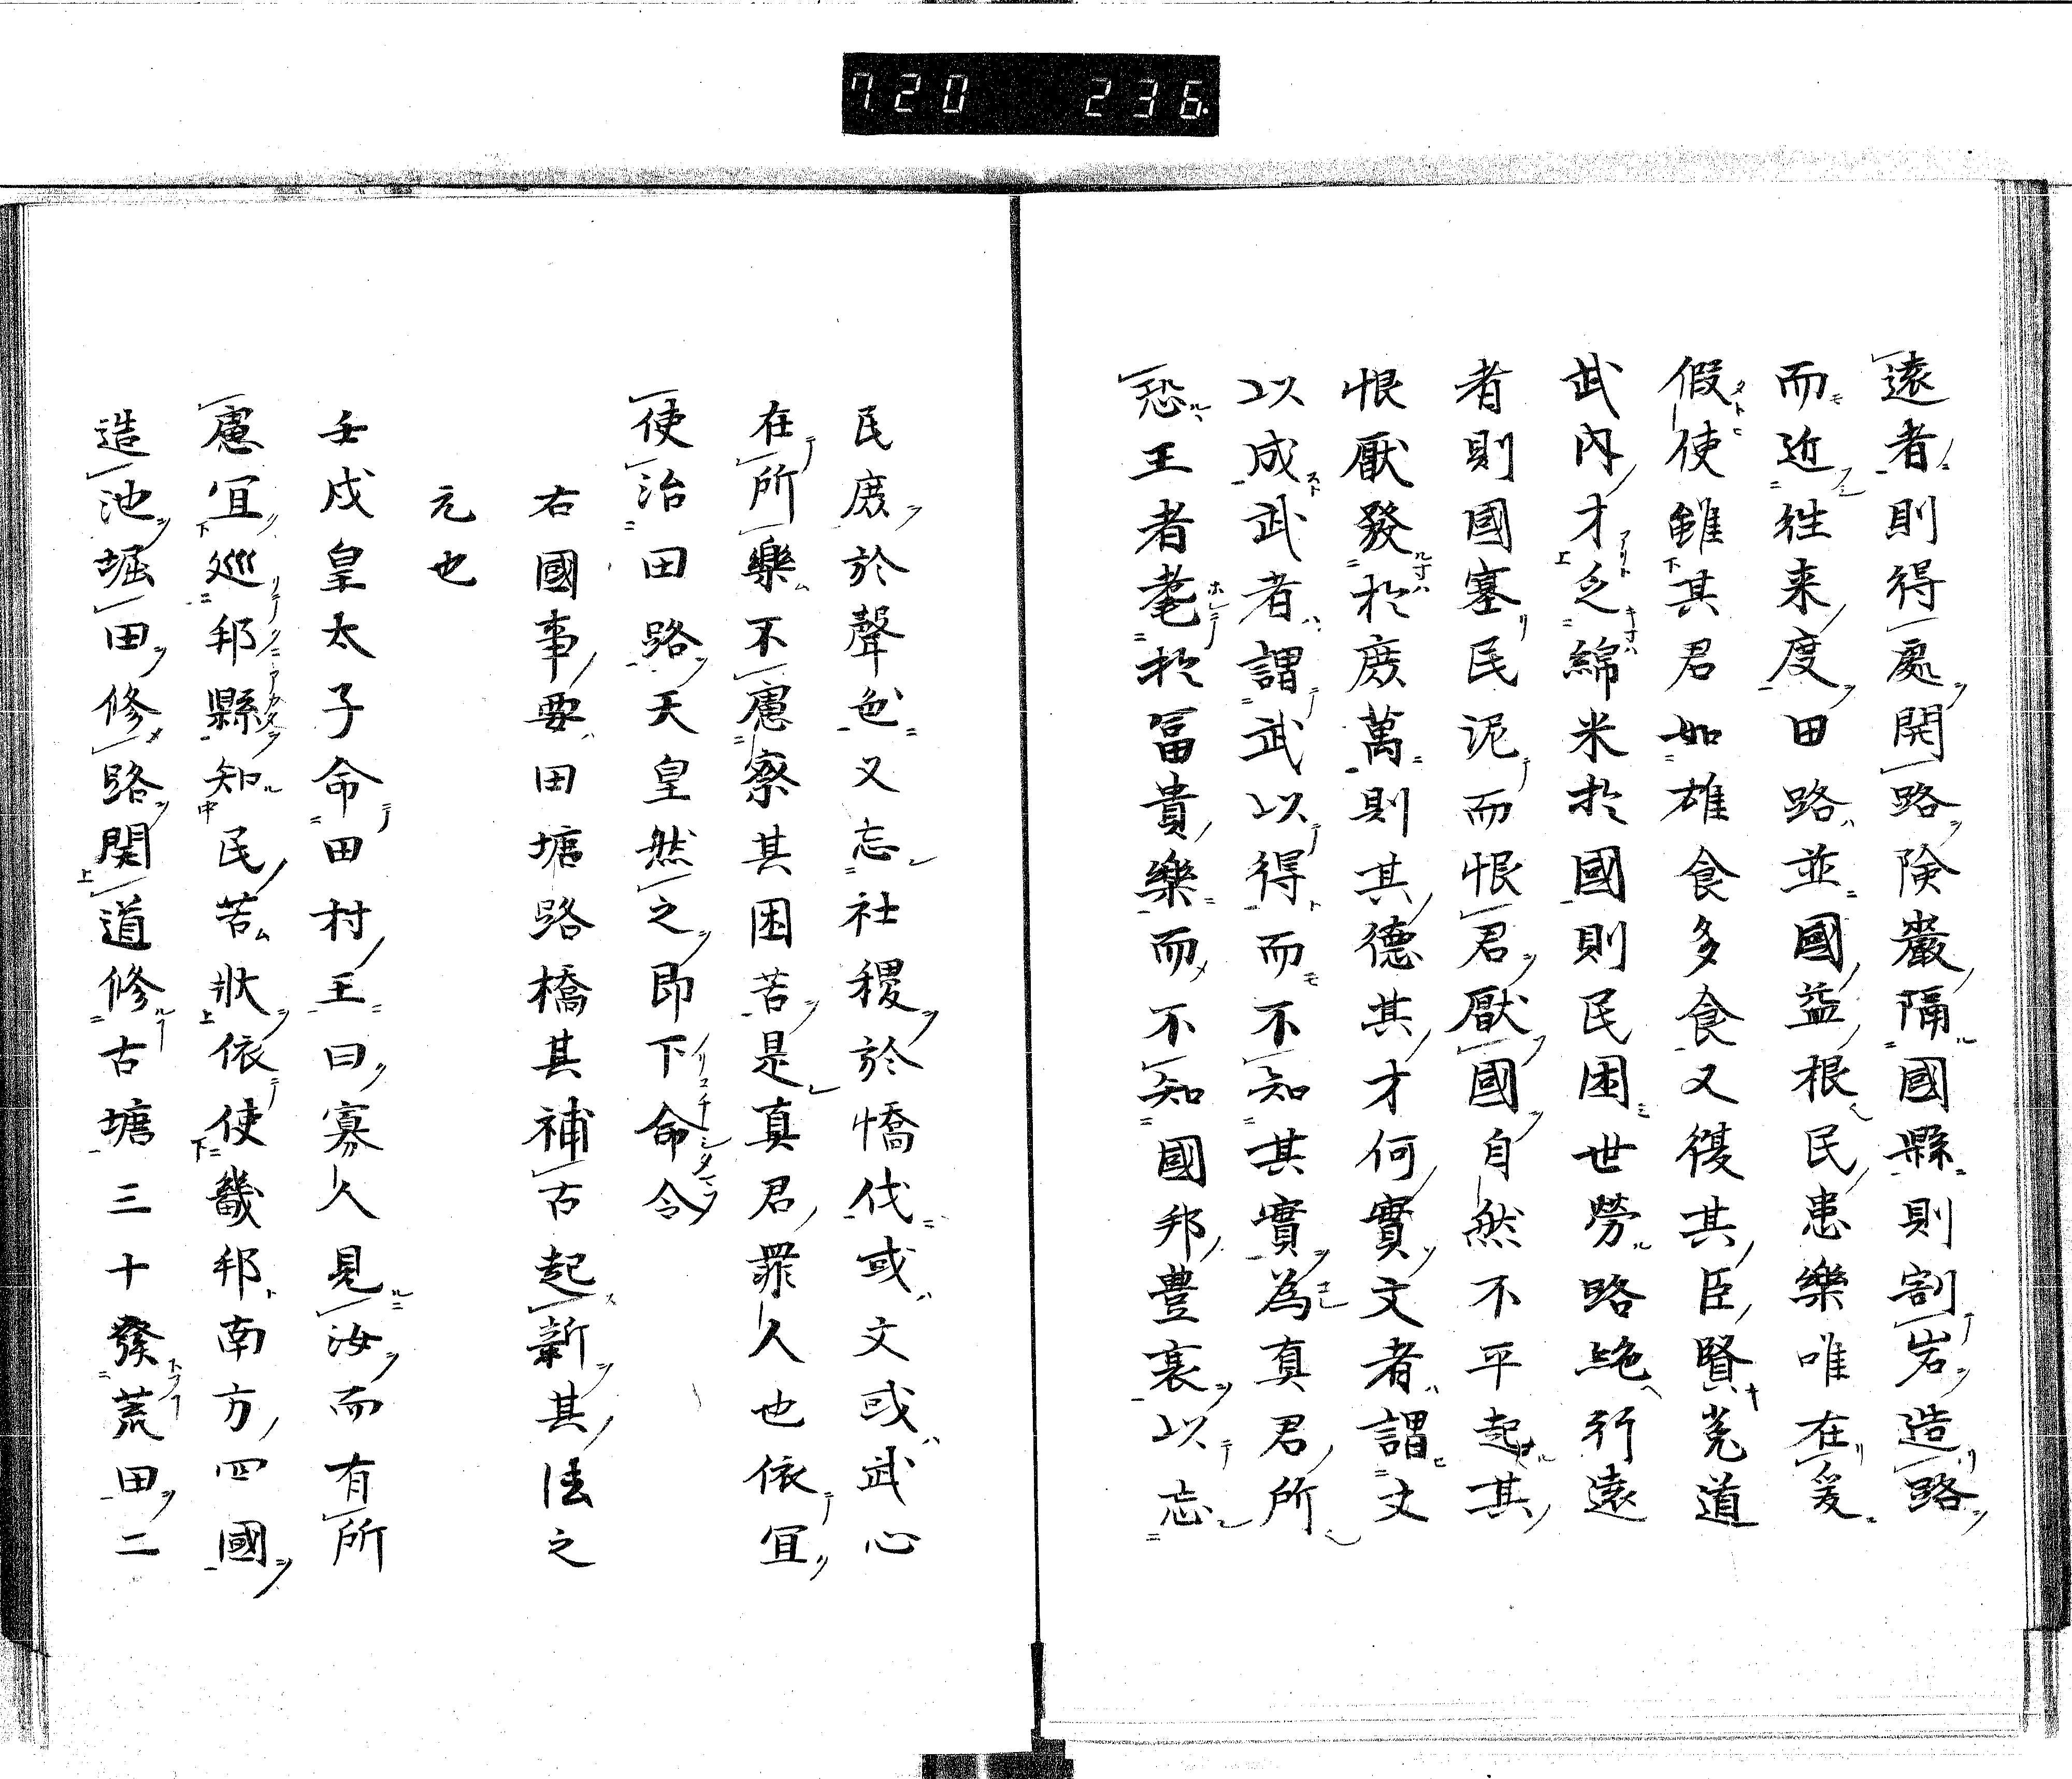 7.20 236.
遠者則得處開路険巖隔國縣則割岩造路
而近往来度田路並國益根民患樂唯在爰
假使雖其君如雄食多食又復其臣賢茺道
武内才乏綿米於國則民困世勞路絶行遠
者則國塞民泥而恨君厭國自然不平起其
恨厭發於庻萬則其德其才何實文者謂文
以成武者謂武以得而不知其實為真君所
恐王者耄於冨貴樂而不知國邦豊衰以忘
民庻於聲色又忘社稷於憍伐或文或武心
在所樂不慮察其困苦是真君罪人也依冝
使治田路天皇然之即下命令
右國事要田塘路橋其補古起新其法之
元也
壬戌皇太子命田村王曰寡人見汝而有所
慮冝巡邦縣知民苦狀依使畿邦南方四國
造池堀田修路関道修古塘三十發荒田二